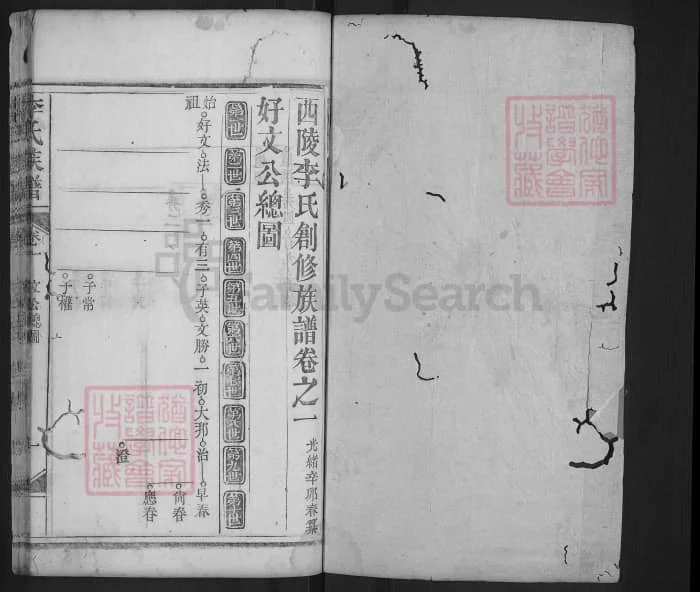 西陵李氏創修族譜卷之一
光緒辛卯春纂
好文公總圖
第一世
第二世
第三世
第四世
第五世
第六世
第七世
第八世
第九世
第十世
始祖
好文
法一
秀一
有三
子英
文勝
一初
大邦
治
早春
尙春
應春
澄
子常
子雅
李氏族譜
卷一
文公總圖
FamilySearch